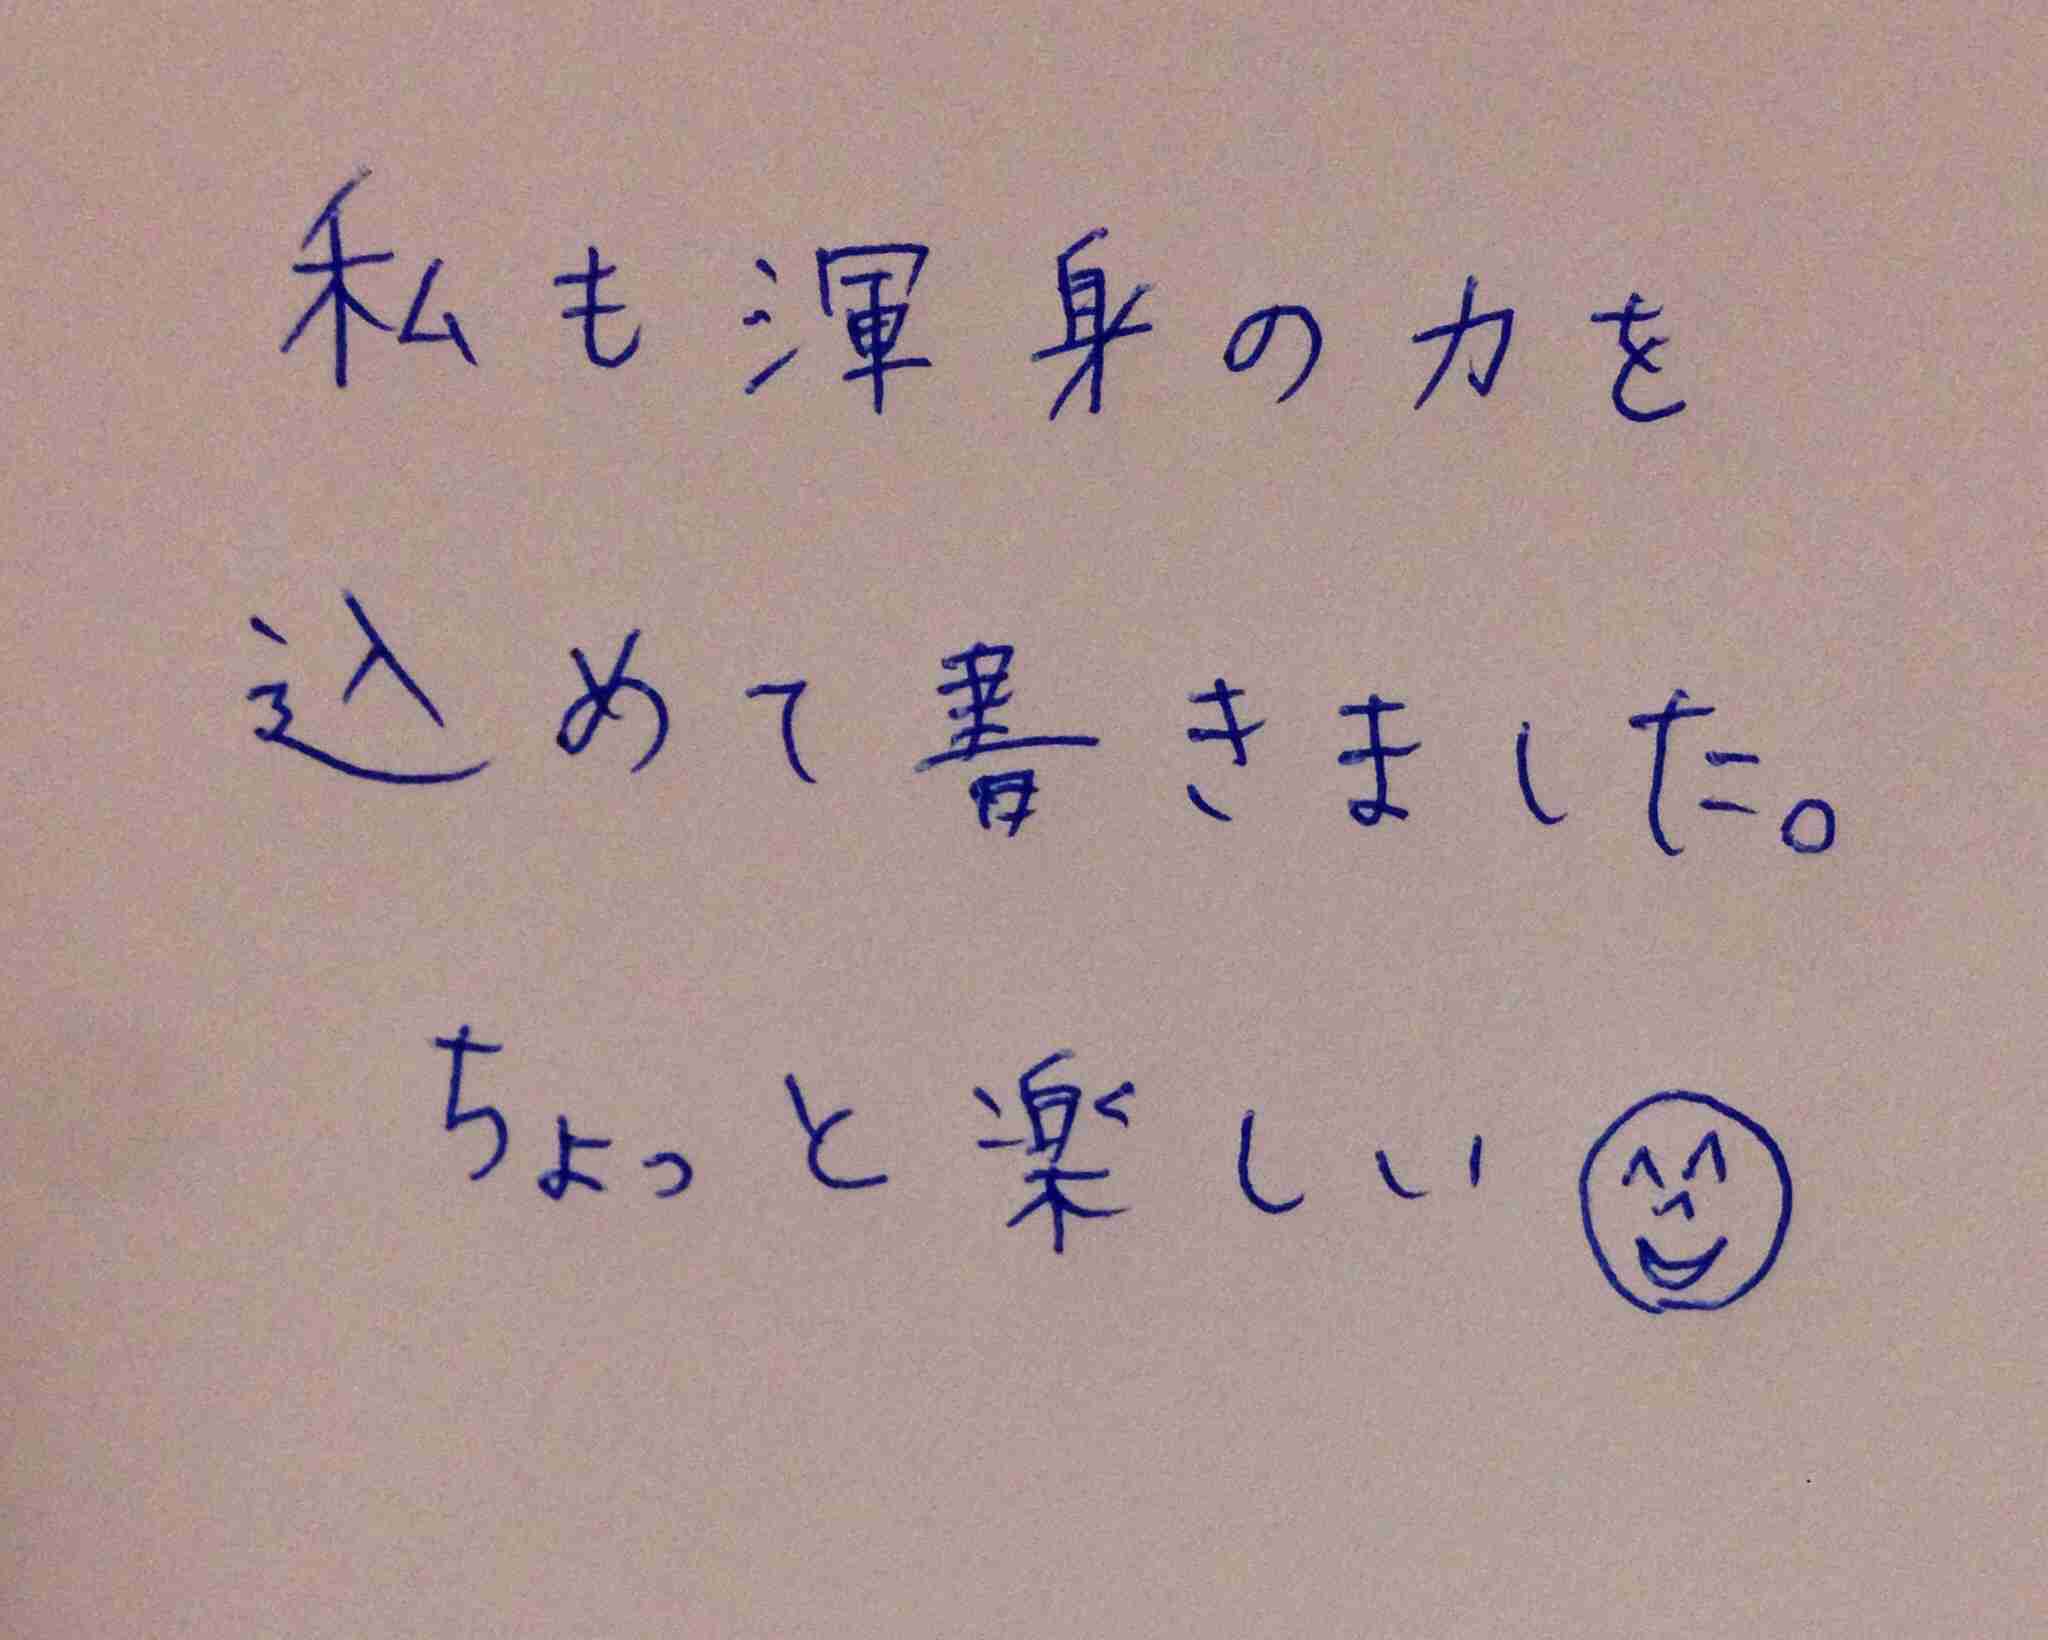 私も渾身の力を
込めて書きました。
ちょっと楽しい